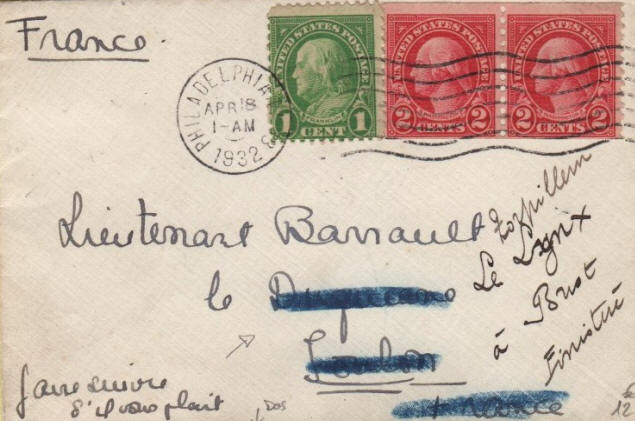 France
UNITED STATES POSTAGE
FRANKLIN
1 CENT 1
UNITED STATES POSTAGE
2 CENTS 2
UNITED STATES POSTAGE
2 CENTS 2
PHILADELPHIA
APR 18
1-AM
1932
Lieutenant Barrault
le
Toulon
France
Torpilleur
Le Lynx
à Brest
Finistère
faire suivre
s'il vous plait
DOS
12